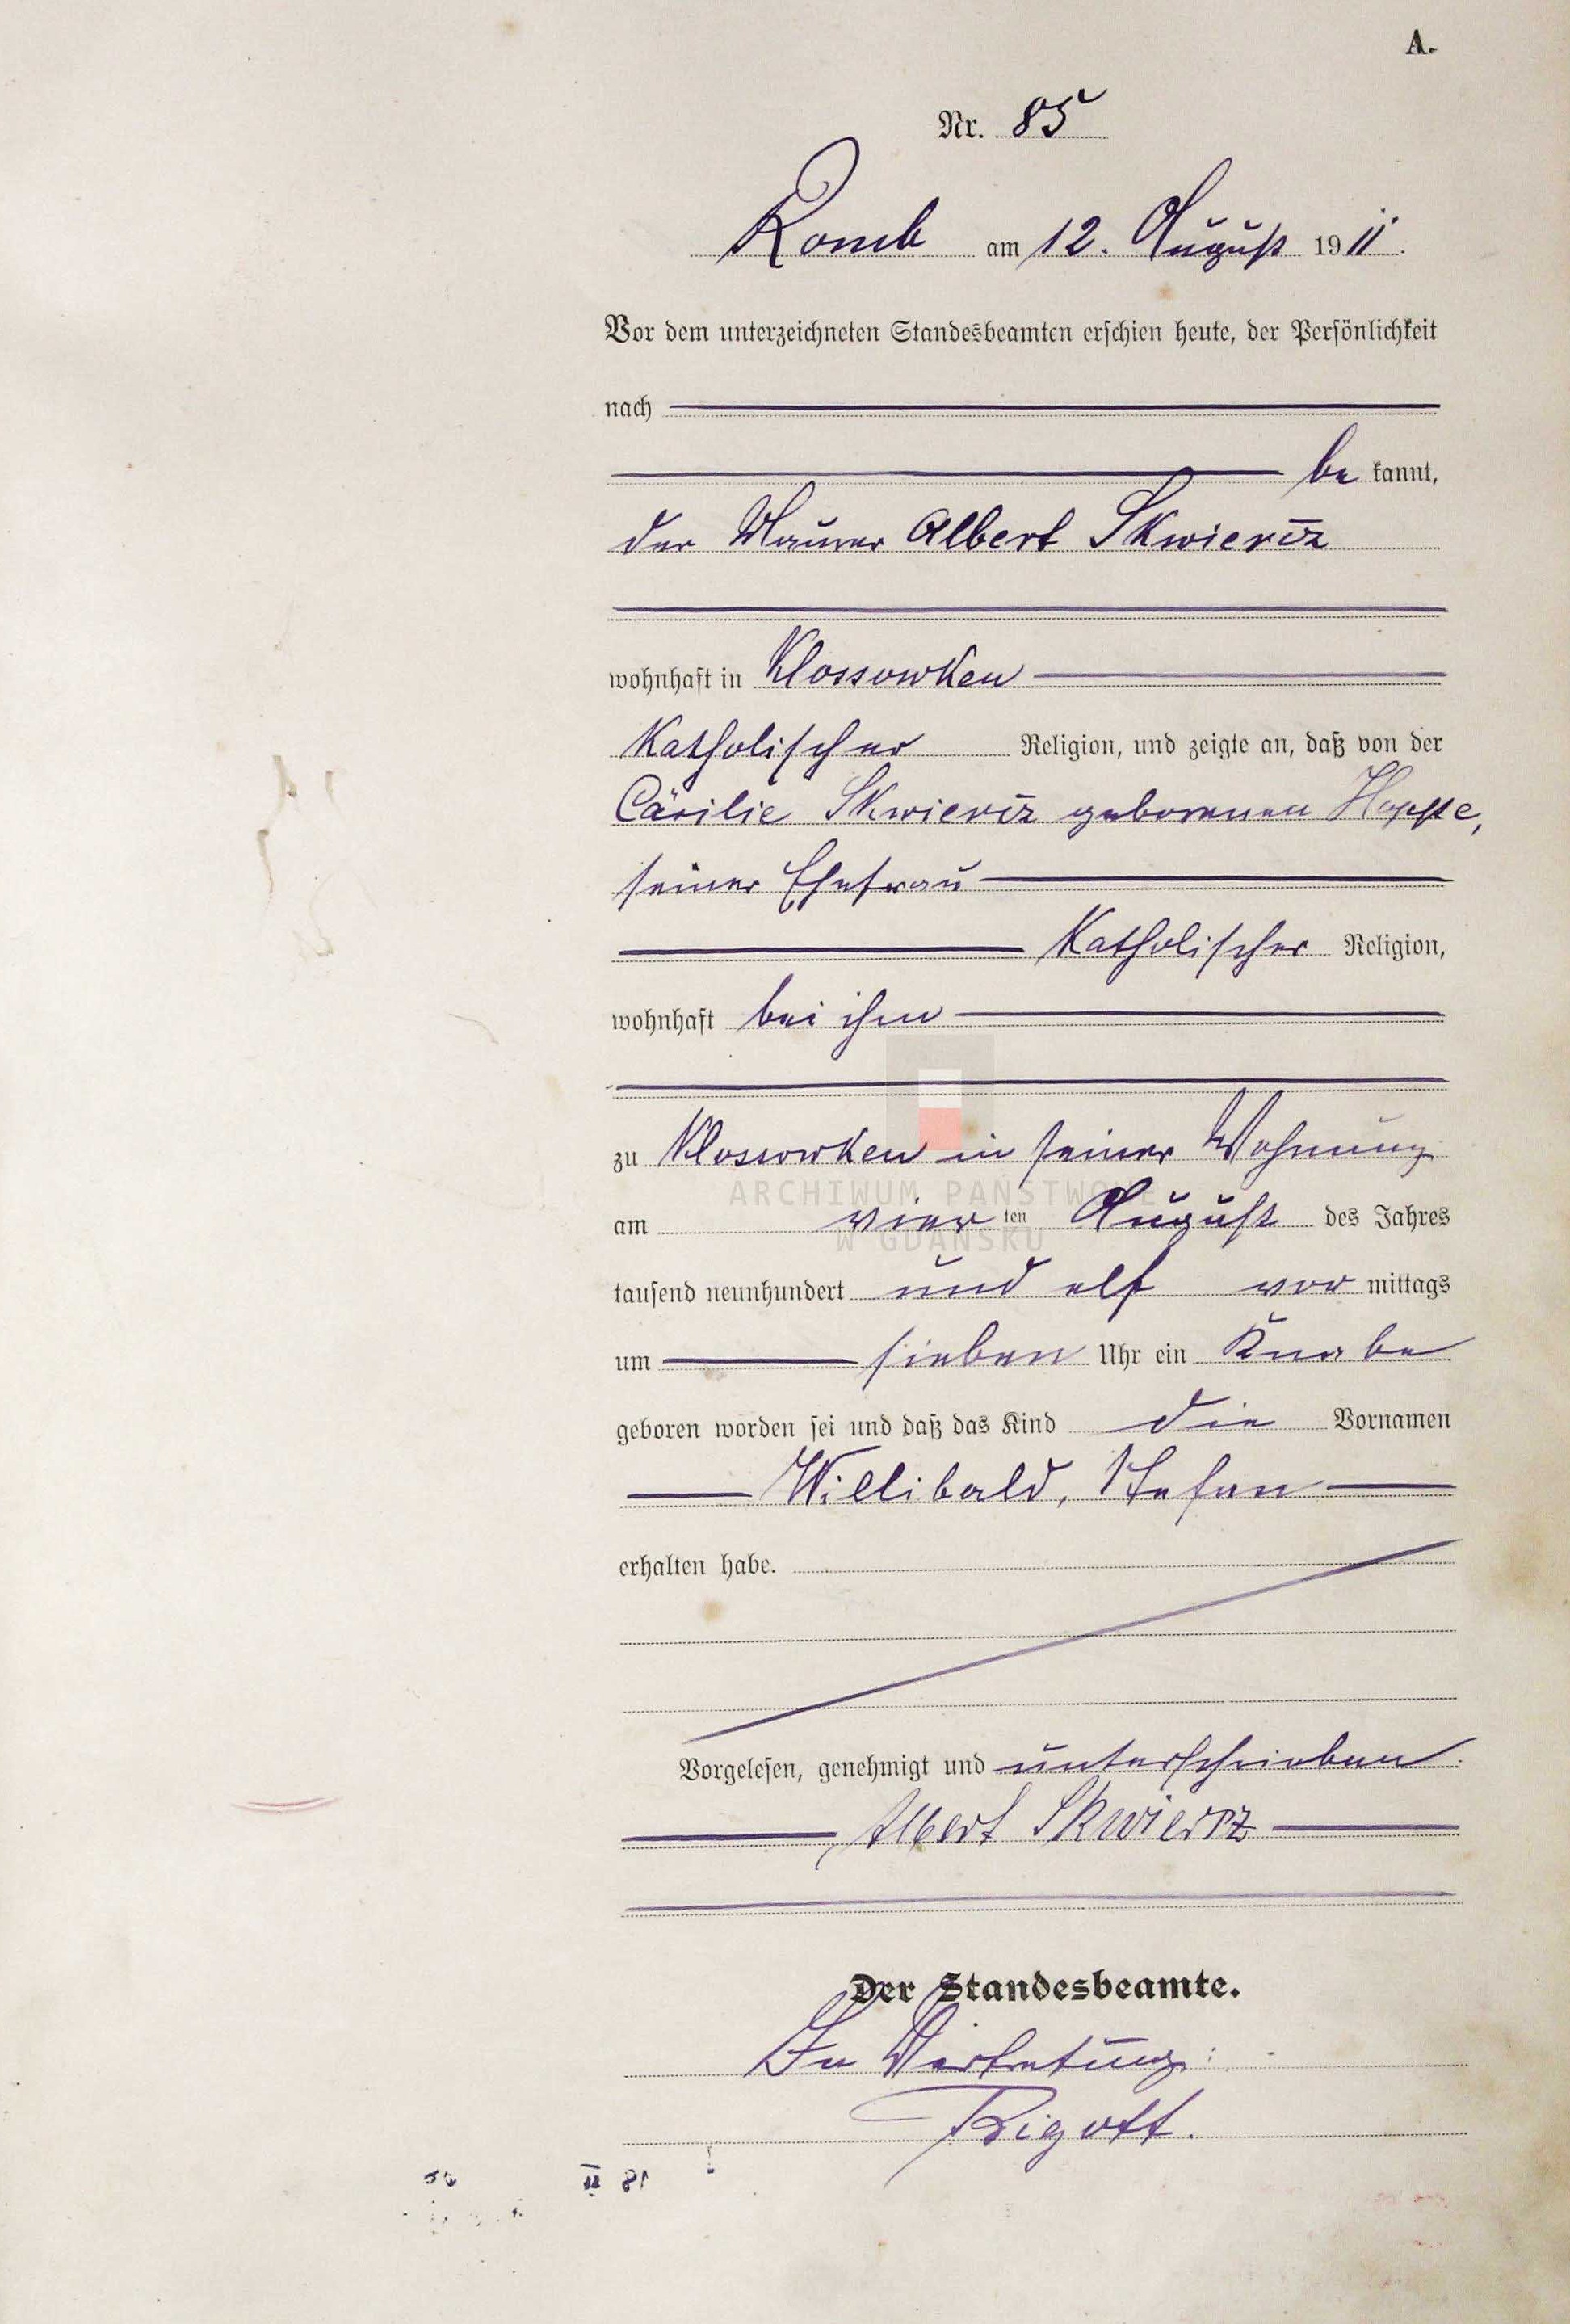 A.
Nr. 85
Romb am 12. August 1911.
Vor dem unterzeichneten Standesbeamten erschien heute, der Persönlichkeit
nach
be kannt,
der Maurer Albert Skwiercz
wohnhaft in Klossowken
Katholischer Religion, und zeigte an, daß von der
Cäcilie Skwiercz geborenen Hoppe,
seiner Ehefrau
Katholischer Religion,
wohnhaft bei ihm
zu Klossowken in seiner Wohnung
ARCHIWUM PAŃSTWOWE
am vier ten August des Jahres
W GDAŃSKU
tausend neunhundert und elf vor mittags
um sieben Uhr ein Knabe
geboren worden sei und daß das Kind die Vornamen
Willibald, Stefan
erhalten habe.
Vorgelesen, genehmigt und unterschrieben.
Albert Skwiercz
Der Standesbeamte.
In Vertretung: